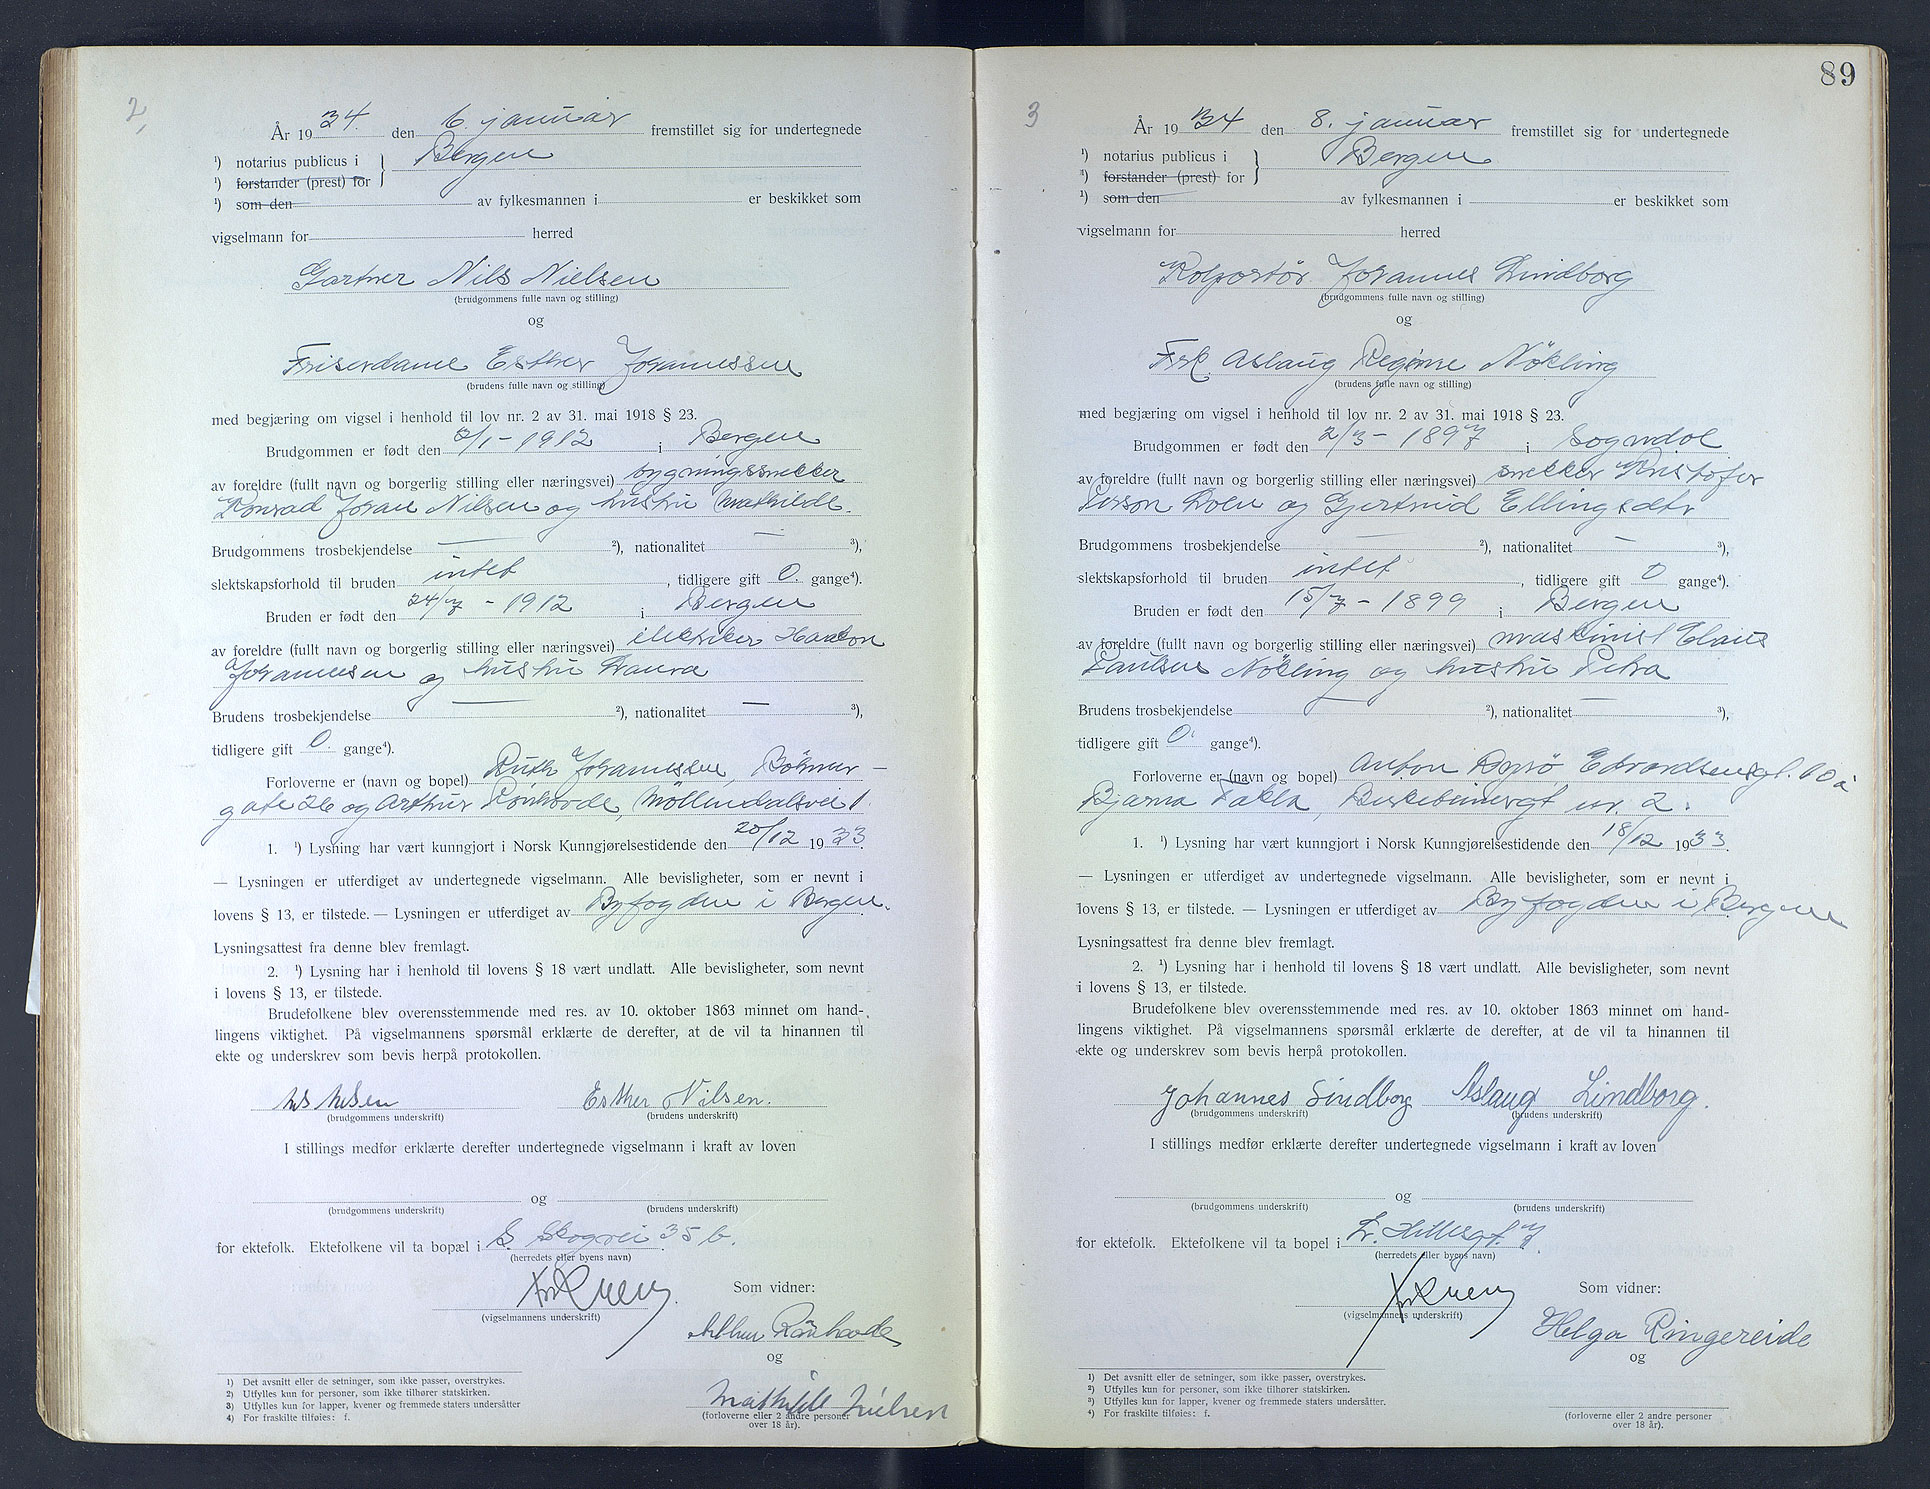 2,
År 1934. den 6. januar fremstillet sig for undertegnede
¹) notarius publicus i } Bergen
¹) forstander (prest) for
¹) som den av fylkesmannen i er beskikket som
vigselmann for herred
Gartner Nils Nielsen
(brudgommens fulle navn og stilling)
og
Friserdame Esther Johannessen
(brudens fulle navn og stilling)
med begjæring om vigsel i henhold til lov nr. 2 av 31. mai 1918 § 23.
Brudgommen er født den /1 - 1912 i Bergen
av foreldre (fullt navn og borgerlig stilling eller næringsvei) bygningssnekker
Konrad Johan Nilsen og hustru Mathilde.
Brudgommens trosbekjendelse — ²), nationalitet — ³),
slektskapsforhold til bruden intet, tidligere gift 0. gange⁴).
Bruden er født den 24/7 - 1912 i Bergen
av foreldre (fullt navn og borgerlig stilling eller næringsvei) elektriker Haakon
Johannesen og hustru Laura
Brudens trosbekjendelse — ²), nationalitet — ³),
tidligere gift 0. gange⁴).
Forloverne er (navn og bopel) Ruth Johannessen, Böhmer-
gate 26 og Arthur Rönhovde, Möllendalsvei 1.
1. ¹) Lysning har vært kunngjort i Norsk Kunngjørelsestidende den 20/12 1933.
— Lysningen er utferdiget av undertegnede vigselmann. Alle bevisligheter, som er nevnt i
lovens § 13, er tilstede. — Lysningen er utferdiget av Byfogden i Bergen.
Lysningsattest fra denne blev fremlagt.
2. ¹) Lysning har i henhold til lovens § 18 vært undlatt. Alle bevisligheter, som nevnt
i lovens § 13, er tilstede.
Brudefolkene blev overensstemmende med res. av 10. oktober 1863 minnet om hand-
lingens viktighet. På vigselmannens spørsmål erklærte de derefter, at de vil ta hinannen til
ekte og underskrev som bevis herpå protokollen.
Nils Nilsen Esther Nilsen.
(brudgommens underskrift) (brudens underskrift)
I stillings medfør erklærte derefter undertegnede vigselmann i kraft av loven
og
(brudgommens underskrift) (brudens underskrift)
for ektefolk. Ektefolkene vil ta bopæl i S. Skogvei 35 b.
(herredets eller byens navn)
Som vidner:
(vigselmannens underskrift)
Arthur Rönhovde
og
Mathilde Nielsen
(forloverne eller 2 andre personer
over 18 år).
¹) Det avsnitt eller de setninger, som ikke passer, overstrykes.
²) Utfylles kun for personer, som ikke tilhører statskirken.
³) Utfylles kun for lapper, kvener og fremmede staters undersåtter
⁴) For fraskilte tilføies: f.
89
3
År 1934 den 8. januar fremstillet sig for undertegnede
¹) notarius publicus i } Bergen
¹) forstander (prest) for
¹) som den av fylkesmannen i er beskikket som
vigselmann for herred
Kolportör Johannes Lindborg
(brudgommens fulle navn og stilling)
og
Frk. Aslaug Regine Nökling
(brudens fulle navn og stilling)
med begjæring om vigsel i henhold til lov nr. 2 av 31. mai 1918 § 23.
Brudgommen er født den 2/3 - 1897 i Sogndal
av foreldre (fullt navn og borgerlig stilling eller næringsvei) snekker Kristofer
Person Loen og Gjertrud Ellingsdtr
Brudgommens trosbekjendelse — ²), nationalitet — ³),
slektskapsforhold til bruden intet, tidligere gift 0 gange⁴).
Bruden er født den 15/7 - 1899 i Bergen
av foreldre (fullt navn og borgerlig stilling eller næringsvei) maskinist Claus
Paulsen Nökling og hustru Petra
Brudens trosbekjendelse — ²), nationalitet — ³),
tidligere gift 0. gange⁴).
Forloverne er (navn og bopel) Anton Dyrö, Edvardsensgt. 10 a
Bjarne Takla, Birkebeinergt nr. 2.
1. ¹) Lysning har vært kunngjort i Norsk Kunngjørelsestidende den 18/12 1933.
— Lysningen er utferdiget av undertegnede vigselmann. Alle bevisligheter, som er nevnt i
lovens § 13, er tilstede. — Lysningen er utferdiget av Byfogden i Bergen
Lysningsattest fra denne blev fremlagt.
2. ¹) Lysning har i henhold til lovens § 18 vært undlatt. Alle bevisligheter, som nevnt
i lovens § 13, er tilstede.
Brudefolkene blev overensstemmende med res. av 10. oktober 1863 minnet om hand-
lingens viktighet. På vigselmannens spørsmål erklærte de derefter, at de vil ta hinannen til
ekte og underskrev som bevis herpå protokollen.
Johannes Lindborg Aslaug Lindborg.
(brudgommens underskrift) (brudens underskrift)
I stillings medfør erklærte derefter undertegnede vigselmann i kraft av loven
og
(brudgommens underskrift) (brudens underskrift)
for ektefolk. Ektefolkene vil ta bopel i L. Hillesgt. 7.
(herredets eller byens navn)
Som vidner:
(vigselmannens underskrift)
Helga Ringereide
og
(forloverne eller 2 andre personer
over 18 år).
¹) Det avsnitt eller de setninger, som ikke passer, overstrykes.
²) Utfylles kun for personer, som ikke tilhører statskirken.
³) Utfylles kun for lapper, kvener og fremmede staters undersåtter.
⁴) For fraskilte tilføies: f.